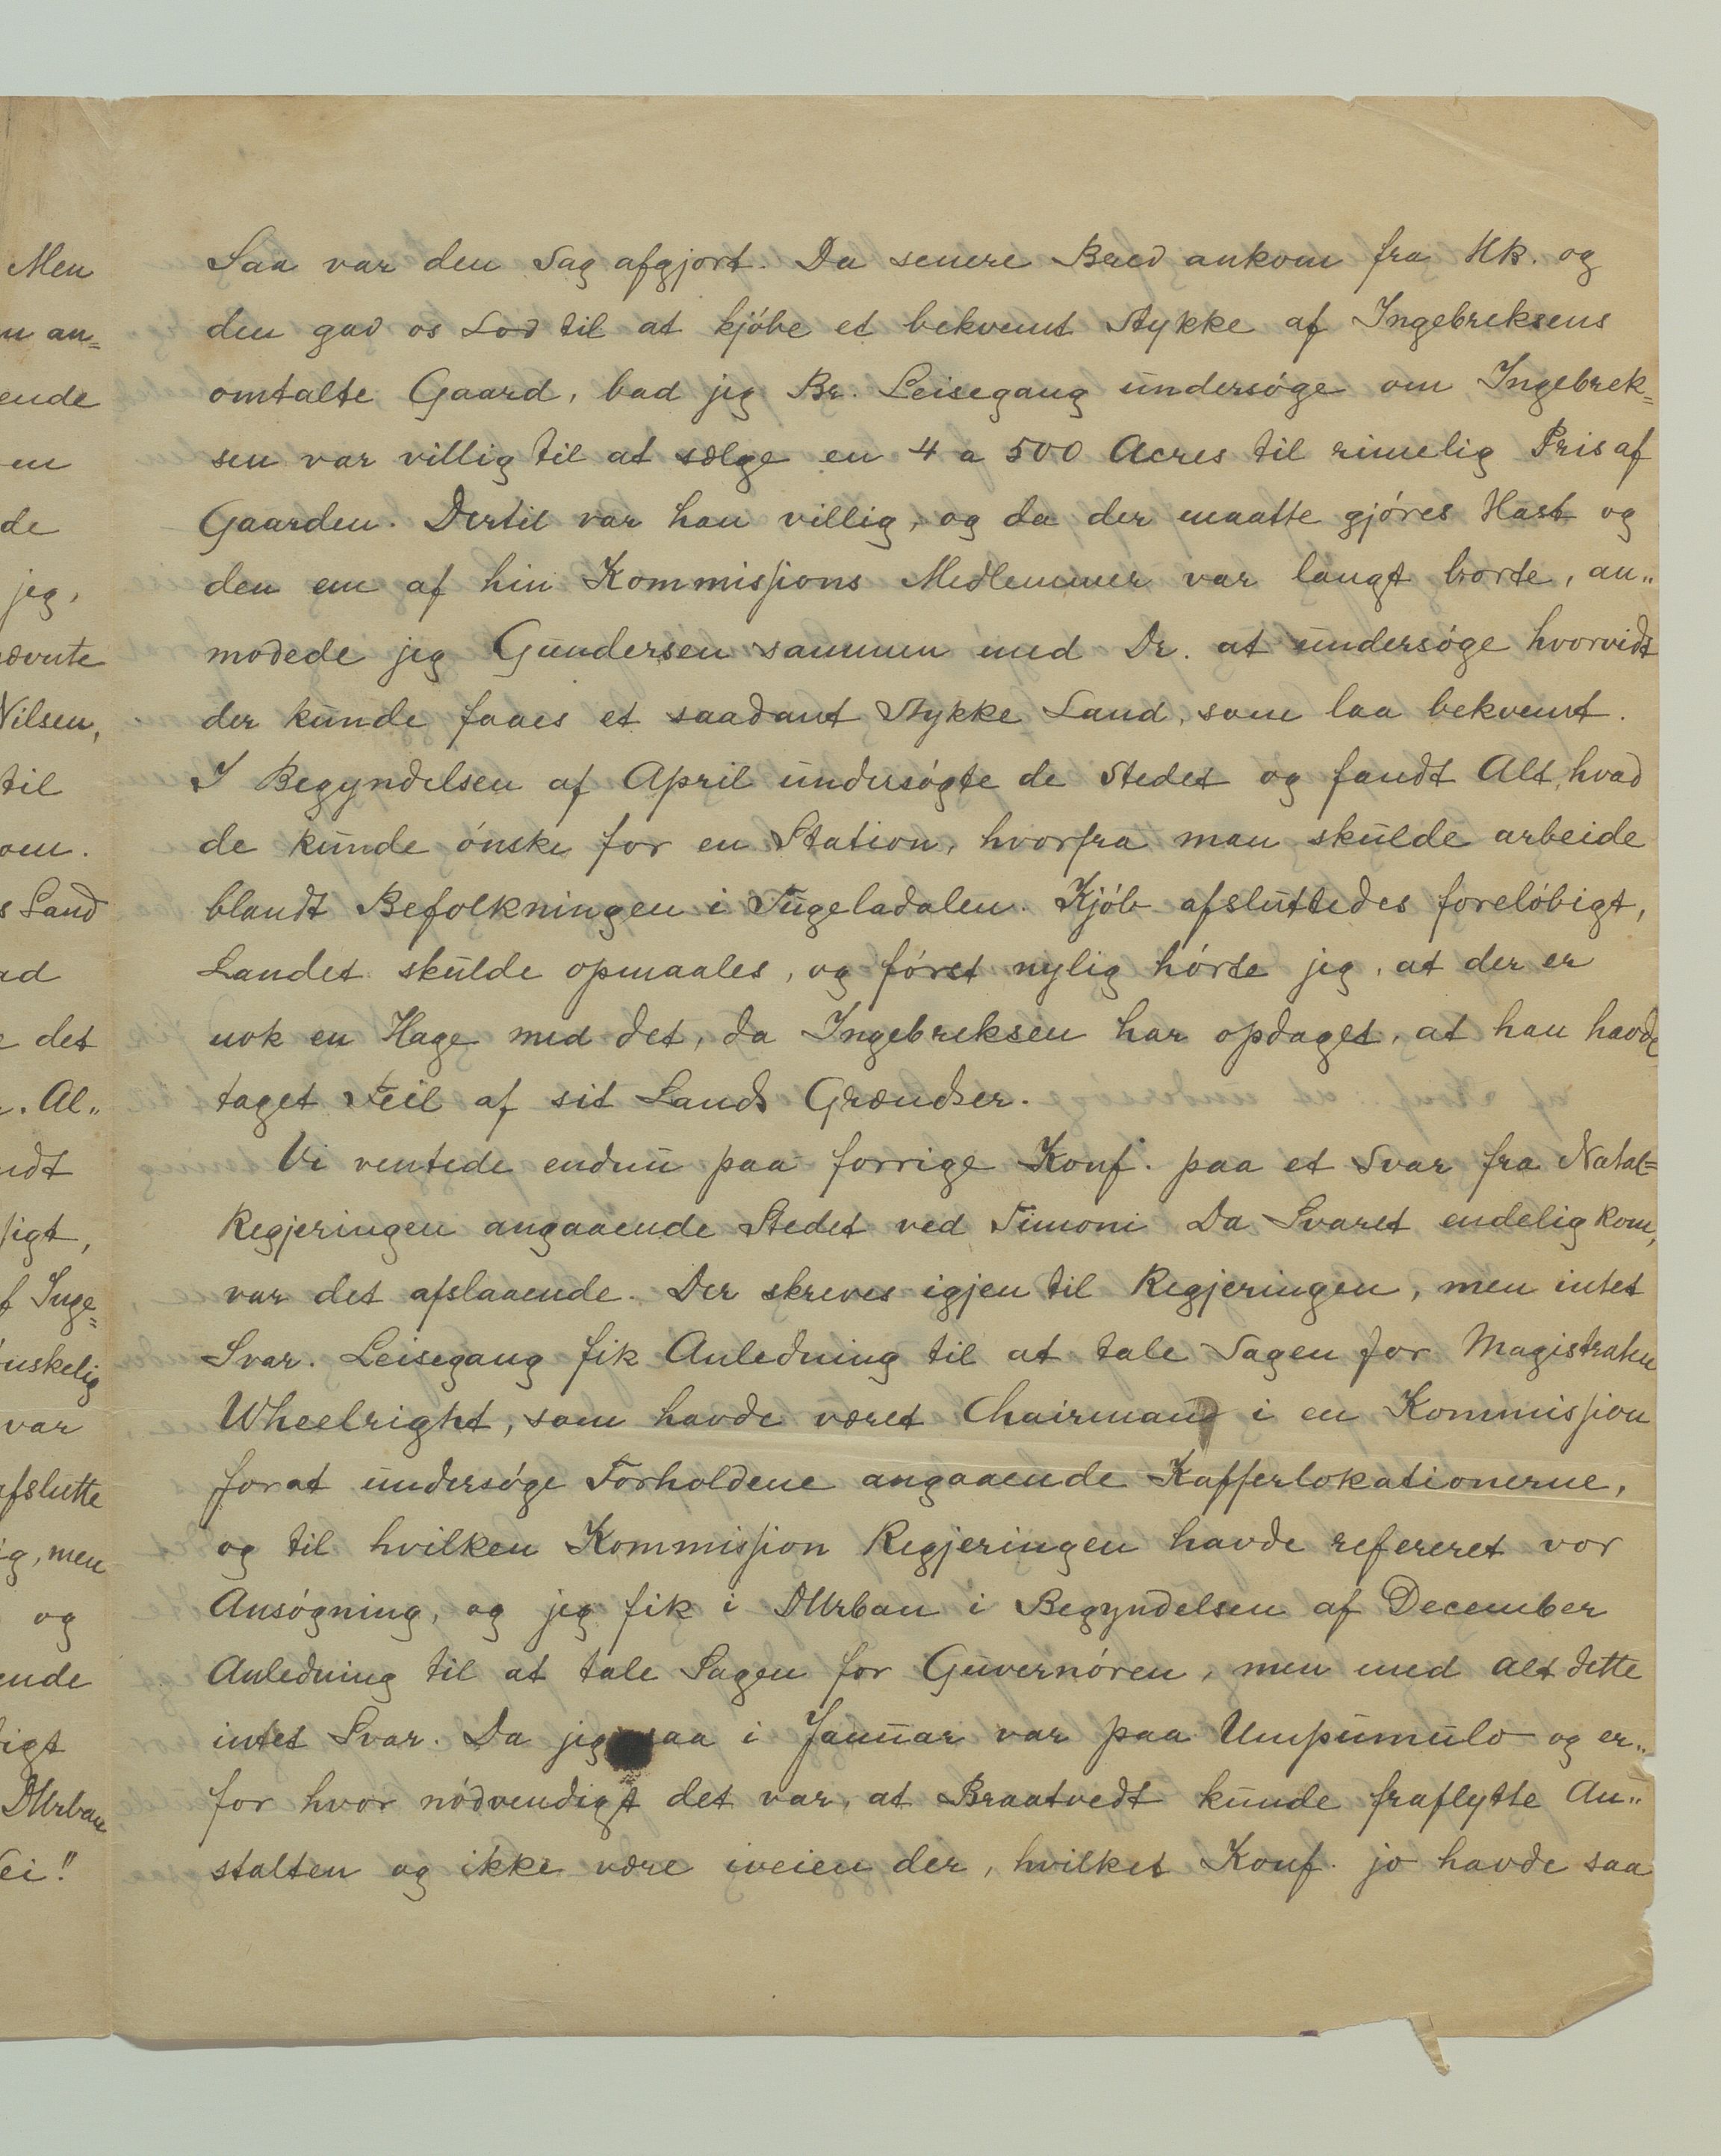 Men
n an=
ende
en
de
jeg,
nævnte
Nilsen,
til
oen.
s Land
ad
e det
r. Al„
ndt
sigt,
f Inge=
ønskelig
var
afslutte
ig, men
og
ende
digt
DUrban
Nei!"
Saa var den Sag afgjort. Da senere Bred ankom fra Hk. og
den gav os Lov til at kjöbe et bekvemt Stykke af Ingebreksens
omtalte Gaard, bad jeg Br. Leisegang undersöge om Ingebrek=
sen var villig til at sælge en 4 a 500 Acres til rimelig Pris af
Gaarden. Dertil var han villig, og da der maatte gjöres Hast og
den ene af hin Kommissions Medlemmer var langt borte, an„
modede jeg Gundersen sammen med Dr. at undersöge hvorvidt
der kunde faaes et saadant Stykke Land, som laa bekvemt.
I Begyndelsen af April undersögte de Stedet og fandt Alt, hvad
de kunde önske for en Station, hvorfra man skulde arbeide
blandt Befolkningen i Tugeladalen. Kjöb afsluttedes forelöbigt,
Landet skulde opmaales, og först nylig hörte jeg, at der er
nok en Hage med det, da Ingebreksen har opdaget, at han havde
taget Feil af sit Lands Grændser.
Vi ventede endnu paa forrige Konf. paa et Svar fra Natal=
Regjeringen angaaende Stedet ved Timoni Da Svaret endelig kom,
var det afslaaende. Der skreves igjen til Regjeringen, men intet
Svar. Leisegang fik Anledning til at tale Sagen for Magistraten
Wheelright, som havde været Chairmand i en Kommission
forat undersöge Forholdene angaaende Kafferlokationerne,
og til hvilken Kommission Regjeringen havde refereret vor
Ansögning, og jeg fik i DUrban i Begyndelsen af December
Anledning til at tale Sagen for Guvernören, men med alt dette
intet Svar. Da jeg saa i Januar var paa Umpumulo og er„
for hvor nödvendigt det var, at Braatvedt kunde fraflytte An„
stalten og ikke være iveien der, hvilket Konf. jo havde saa